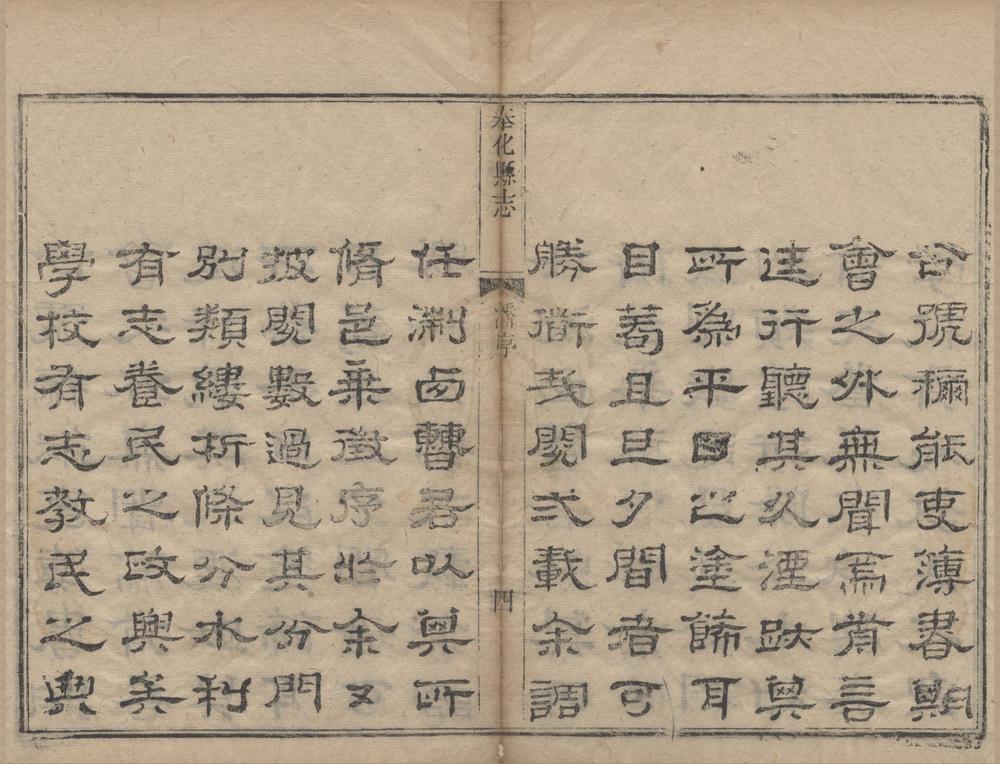 今號稱能吏簿書期
會之外無聞焉前言
往行聽其久湮跌其
所為平日之塗飾耳
目苟且旦夕間者可
勝衟哉閱弍載余調
奉化縣志
序
四
任淛西曹君以其所
脩邑乘徵序於余又
披閱數過見其分門
別類縷析條分水利
有志養民之政興矣
學校有志教民之典